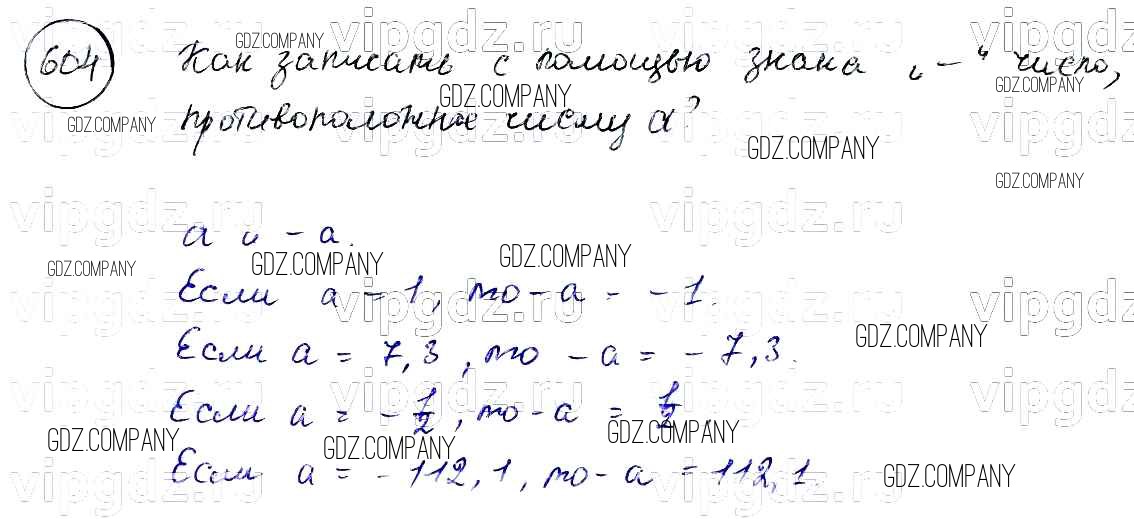 604 Как записать с помощью знака „–“ число,
противоположное числу a?
a и – a.
Если a = 1, то – a = – 1.
Если a = 7,3, то – a = – 7,3.
Если a = – 1/2, то – a = 1/2.
Если a = – 112,1, то – a = 112,1.
vipgdz.ru
GDZ.COMPANY